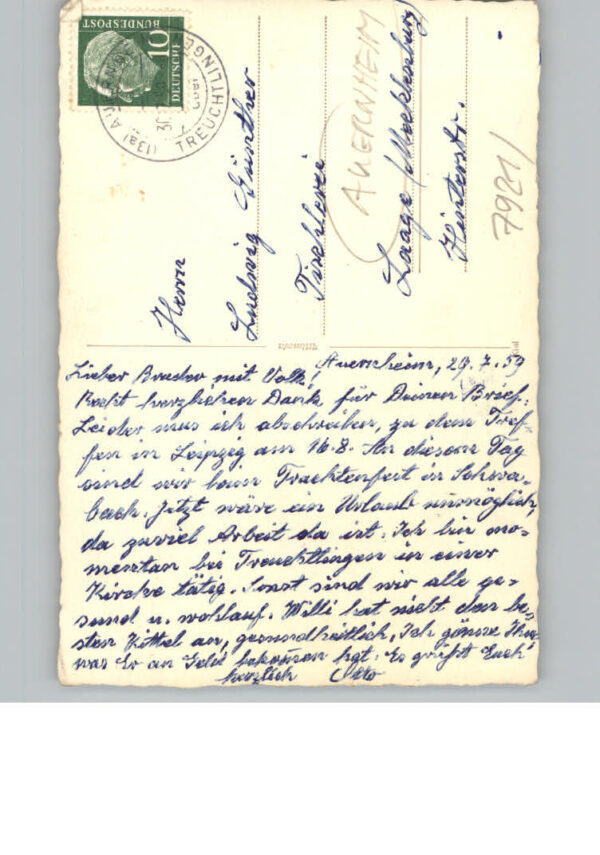 DEUTSCHE
BUNDESPOST
10
(13a) AUERNHEIM
TREUCHTLINGEN
30. 7.
Herrn
Ludwig Günther
Tischlerei
Laage/Mecklenburg
Hinterstr.
AUERNHEIM
7921/
Auernheim, 29.7.59
Lieber Bruder mit Volk!
Recht herzlichen Dank für Deinen Brief.
Leider mus ich abschreiben, zu dem Tref-
fen in Leipzig am 16.8. An diesem Tag
sind wir beim Trachtenfest in Schwa-
bach. Jetzt wäre ein Urlaub unmöglich,
da zuviel Arbeit da ist. Ich bin mo-
mentan bei Treuchtlingen in einer
Kirche tätig. Sonst sind wir alle ge-
sund u. wohlauf. Willi hat nicht den be-
sten Kittel an, gesundheitlich. Ich gönne Ihm
was Er an Geld bekommen hat. Es grüßt Euch
herzlich Otto